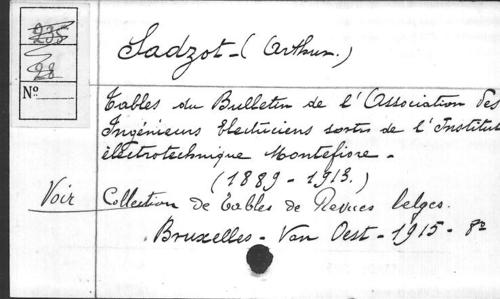 Sadzot - (Arthur.)
235
28
No
Tables du Bulletin de l'Association des
Ingénieurs Electriciens sortis de l'Institut
électrotechnique Montefiore -
(1889 - 1913.)
Voir Collection de Tables de Revues belges.
Bruxelles - Van Oest - 1915 - 8º